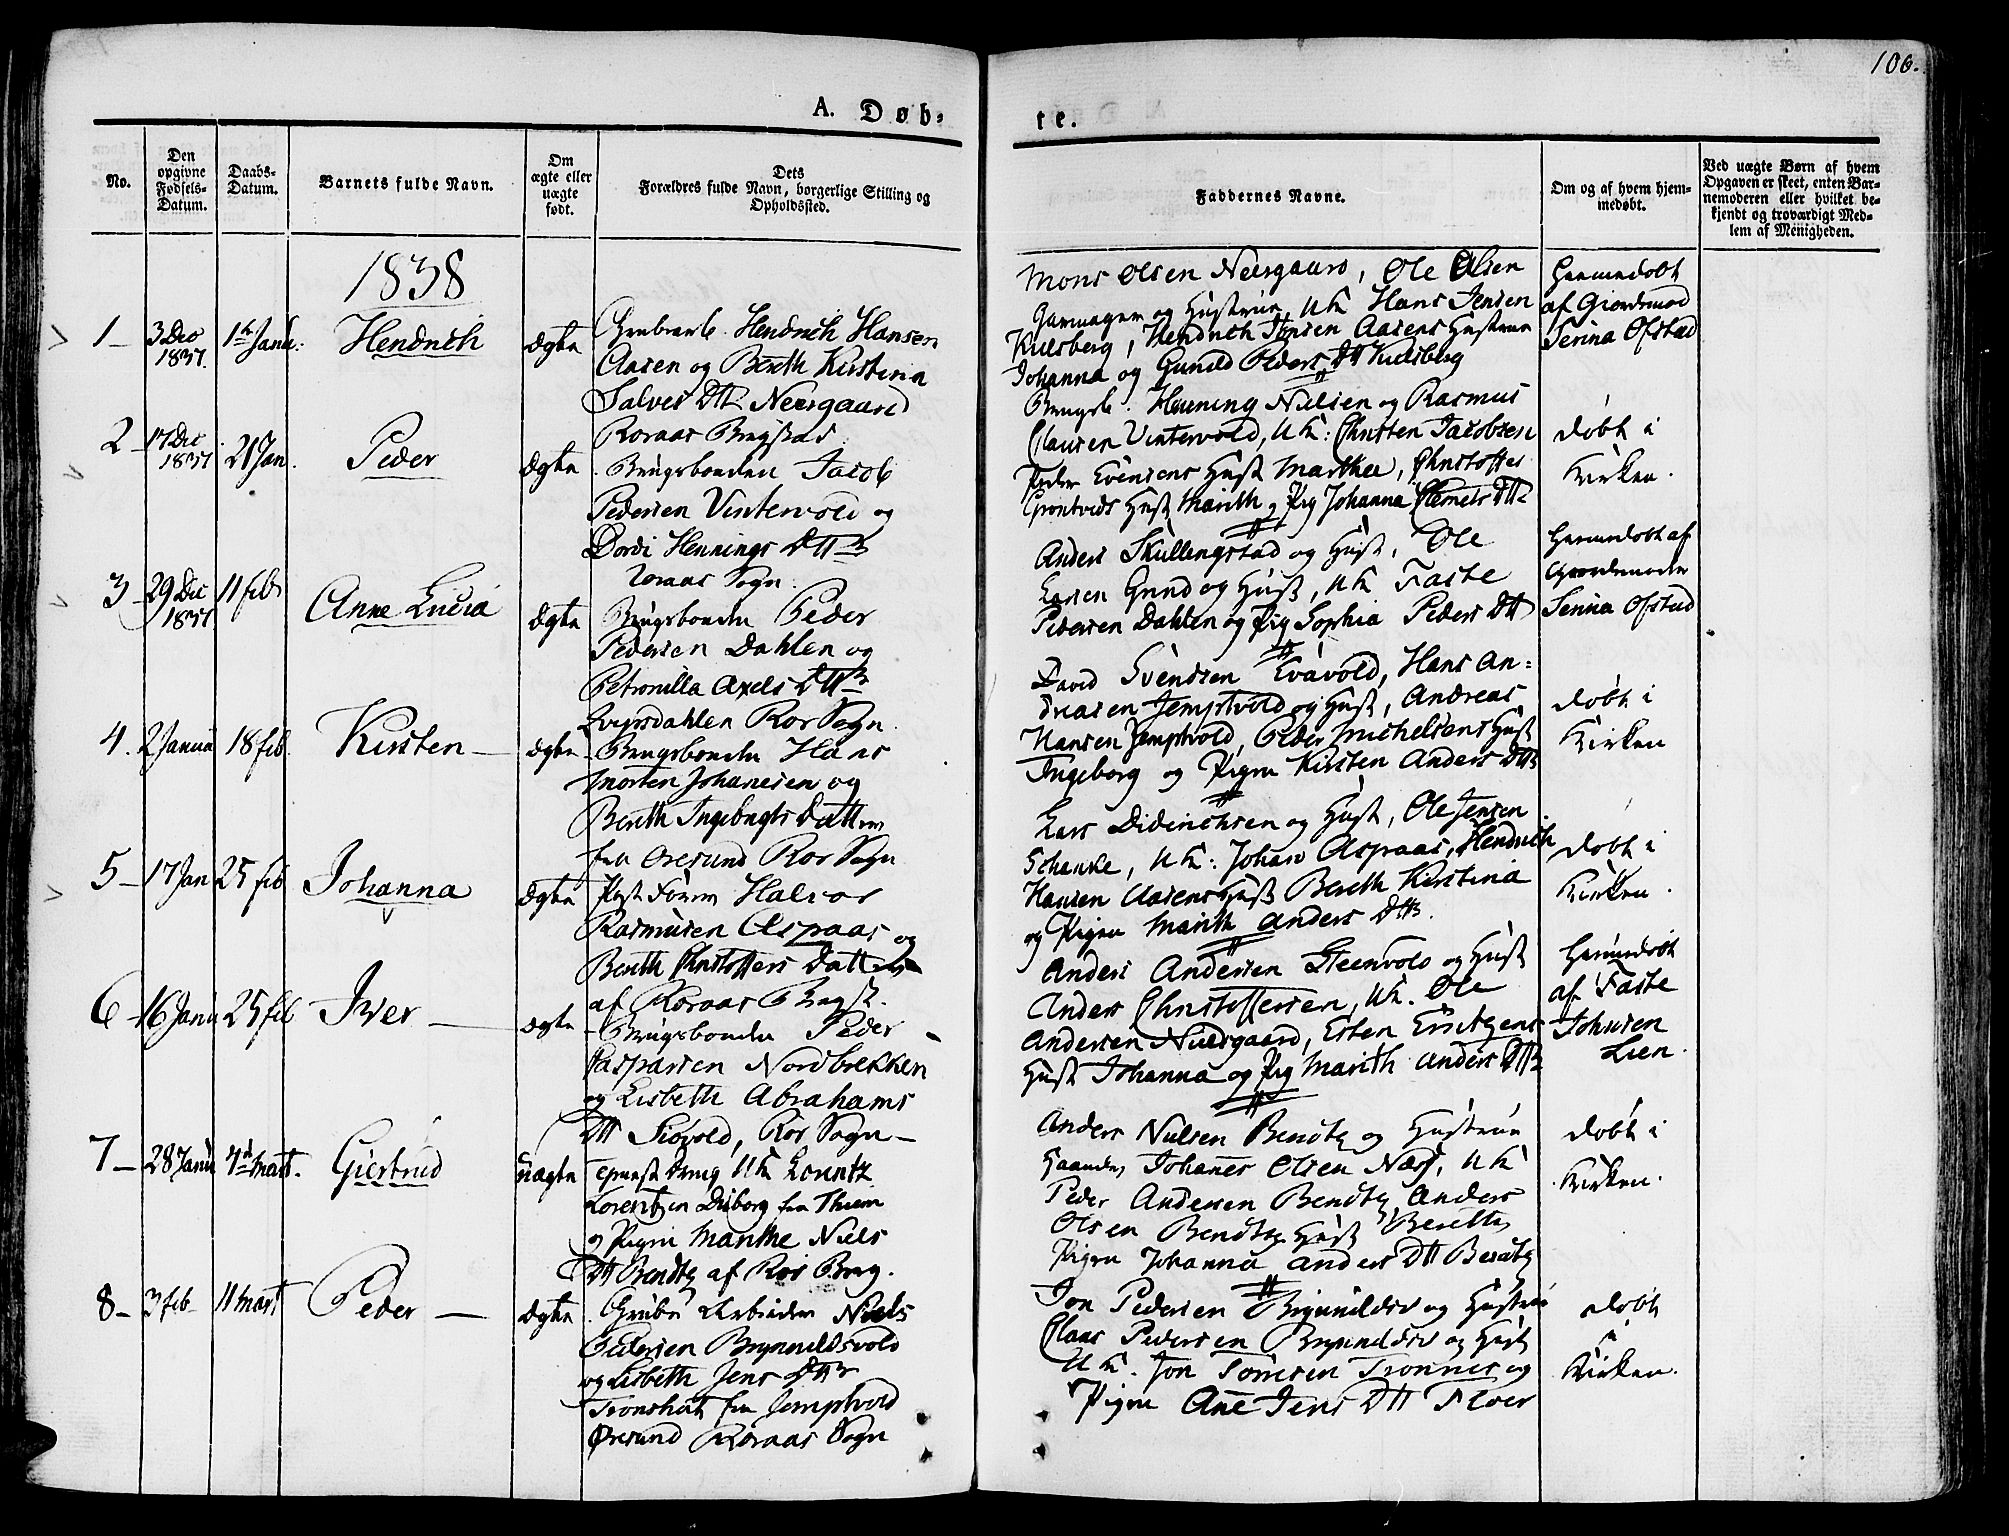 106.
A. Døb-
te.
No.
Den
opgivne
Fødsels-
Datum.
Daabs-
Datum.
Barnets fulde Navn.
Om
ægte eller
uægte
født.
Dets
Forældres fulde Navn, borgerlige Stilling og
Opholdssted.
Faddernes Navne.
Om og af hvem hjem-
medøbt.
Ved uægte Børn af hvem
Opgaven er skeet, enten Bar-
nemoderen eller hvilket be-
kjendt og troværdigt Med-
lem af Menigheden.
1838
1 3 Dec
1837.
1te Janu:
Hendrich
ægte
Hendrich Hansen
Aasen og Bereth Kirstina
Salves Dtr Neergaard
Røraas Bergstad.
Mons Olsen Neergaard, Ole Olsen
Garmager og Hustrue, UK Hans Jensen
Kulsberg, Hendrich Jensen Aasens Hustrue
Johanna og Gunild Peders Dtr Kulsberg
Hjemmedøbt
af Giordemod
Serina Ofstad
2 17 Dec
1837
21 Jan.
Peder
ægte
Brugsbonden Jacob
Pedersen Vintervold og
Dordi Hennings Dttr
Røraas Sogn.
Henning Nielsen og Rasmus
Clausen Vintervold, UK: Christen Jacobsen
Peder Evensens Hust Marthea, Christoffer
Grontveds Hust Marith og Pig Johanna Clemets Dtr
døbt i
Kirken.
3 29 Dec
1837
11 feb
Anne Lucia
ægte
Brugsbonden Peder
Pedersen Dahlen og
Petronilla Axels Dttr
Røv Sogn.
Anders Skullengstad og Hust, Ole
Larsen Grund og Hust, UK Faste
Pedersen Dahlen og Pig Sophia Peders Dtt
Hjemmedøbt af
Giordemoder
Serina Ofstad
4. 2 Januu
18 feb.
Kirsten
ægte
Brugsbonden Hans
Morten Johanesen og
Bereth Ingebrigts Datter
fra Øresund Rør Sogn
David Svendsen Evavold, Hans An-
dreasen Jemptvold og Hust, Andreas
Hansen Jemptvold, Peder Michelsens Hust
Ingeborg og Pigen Kirsten Anders Dttr
døbt i
Kirken
5 17 Jan
25 feb
Johanna
ægte
Halvor
Rasmusen Aspaas og
Bereth Christoffers Datter
af Røraas Bergst.
Lars Diderichsen og Hust, Ole Jensen
Schanke, UK: Johan Aspaas, Hendrich
Hansen Aasens Hust Bereth Kirstina
og Pigen Marith Anders Dttr.
døbt i
Kirken.
6 16 Janu
25 feb
Iver
ægte
Brugsbonden Peder
Caspersen Nordbrekken
og Lisbeth Abrahams
Dtt Siøvold, Rør Sogn
Anders Andersen Steenvold og Hust
Anders Christoffersen, UK. Ole
Andersen Neergaard, Esten
Hust Johanna og Pig Marith Anders Dttr
Hjemmedøbt
af Faste
Johnsen
Lien.
7 28 Janu
4de Mart.
Giertrud
uægte
UK Lorentz
Lorentzen Duborg fra Thiem
og Pigen Marithe Niels
Dtt Bendtz af Rør Berg.
Anders Nielsen Bendtz og Hustrue
Johanes Olsen Næss, UK
Peder Andersen Bendtz, Anders
Olsen Bendtz Hust Bereth,
Pigen Johanna Anders Dtt Bendtz
døbt i
Kirken.
8 3 feb
11 Mart
Peder
ægte
Grube Arbeider Niels
Pedersen Brynnildsvold
og Lisbeth Jens Dttr
Tronshart fra Jemptvold
Øresund Røraas Sogn
Jon Pedersen Brynildsv og Hustrue
Claas Pedersen Brynnildsv og Hust
UK. Jon Tomesen Tronnes og
Pigen Ane Jens Dtt Floer
døbt
i
Kirken.